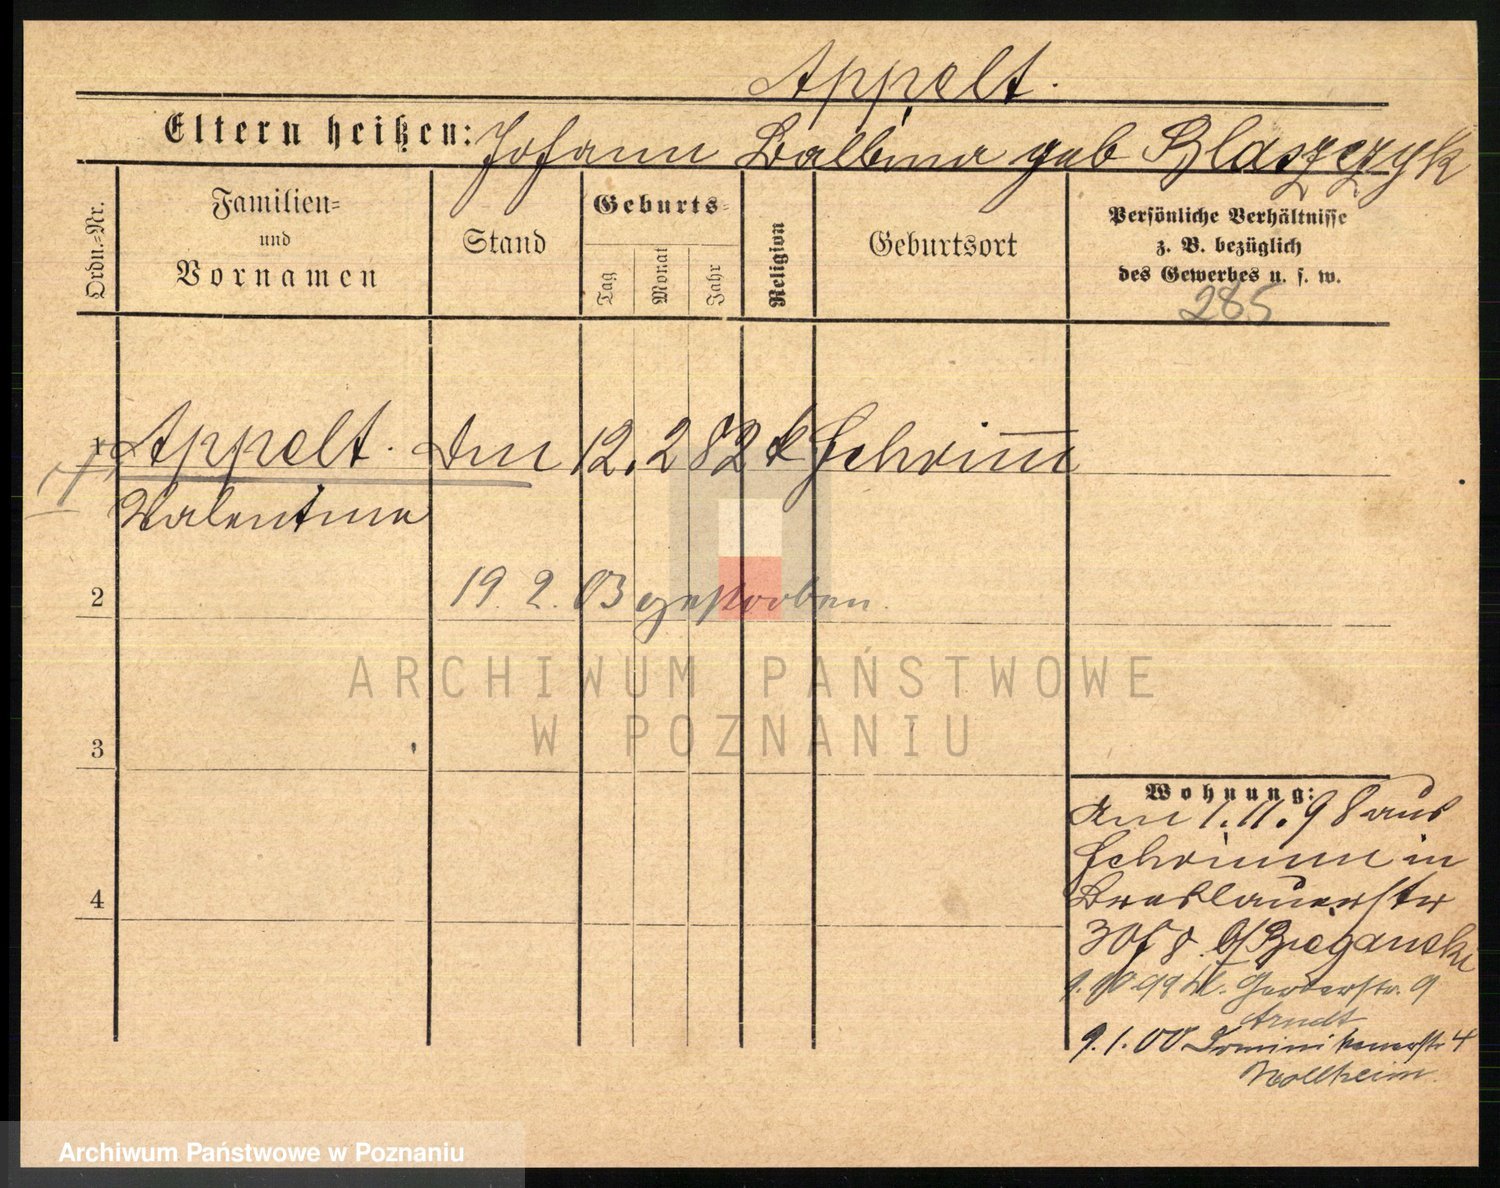 Appelt.
Eltern heißen: Johann Balbina geb Blaszczyk
Ordn.=Nr.
Familien=
und
Vornamen
Stand
Geburts=
Tag
Monat
Jahr
Religion
Geburtsort
Persönliche Verhältnisse
z. B. bezüglich
des Gewerbes u. s. w.
285
1 Appelt. 12. 2 82 k Schrim̅
Valentine
2
19. 2. 03 gestorben.
ARCHIWUM PAŃSTWOWE
W POZNANIU
3
4
Wohnung:
am 1. 11. 98 aus
Schrimm in
Breslauerstr
b/
Gerberstr. 9
Arndt
9. 1. 00 Dominikanerstr 4
Wollheim
Archiwum Państwowe w Poznaniu